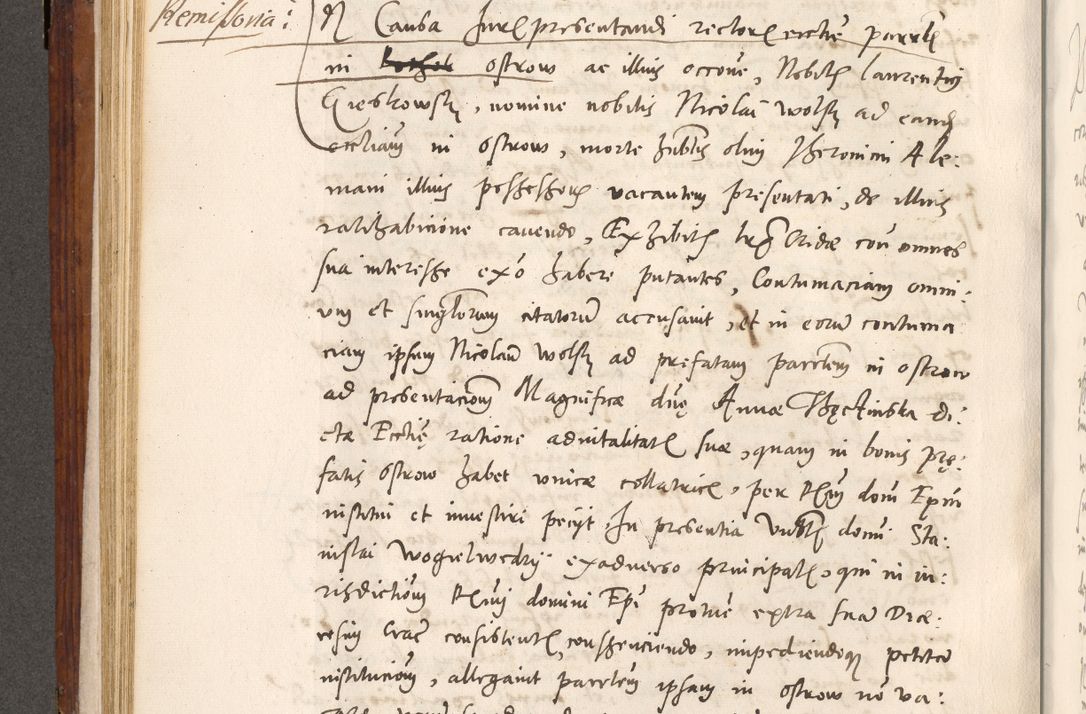 Remissoria:
In Causa Juris presentandi rectoris ecclie parrlis
in ostrow ac illius occone, Nobilis laurentius
Gieskowsky, nomine nobilis Nicolai wolsky ad eandem
eccliam in ostrow, morte hnbilis olim Iheronimi Ale:
mani illius possessoris vacantem presentati, de illius
ratihabicione cavendo, Exhibitis lris Cridae con omnes
sua interesse exo habere putantes, Contumaciam omni:
um et singlorum citatorum accusavit, et in eorum contuma
ciam ipsum Nicolaum wolsky ad prefatam parrlem in ostrow
ad presentacionem Magnificae dnę Annae Thęczinska di:
ctae Ecclię ratione advitalitatis suae, quam in bonis prę:
fatis ostrow habet unicae collatricis, per Rmum dom Epum
institui et investiri peciit. In presentia domi Sta:
nislai Wogielwedrij ex adverso principalis, qui in iu:
risdictionem Rmi domini Epi protunc extra suam Dioe:
cesim Crac consistentis, consentiendo, impediendoque petitam
institucionem, allegavit parrlem ipsam in ostrow no va: